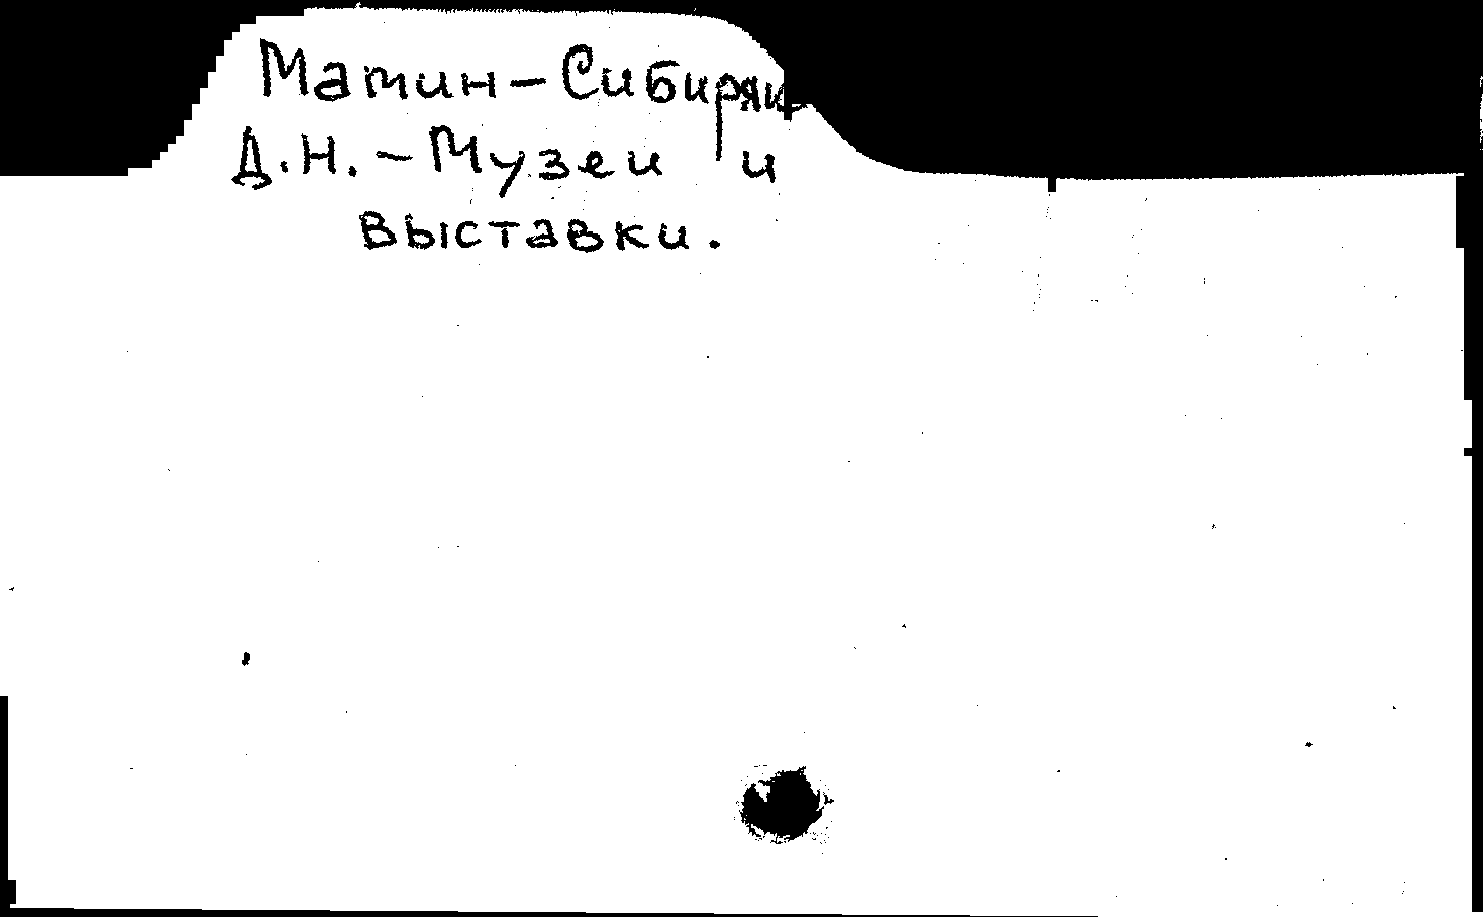 Мамин-Сибиряк
Д.Н.-Музеи и
выставки.